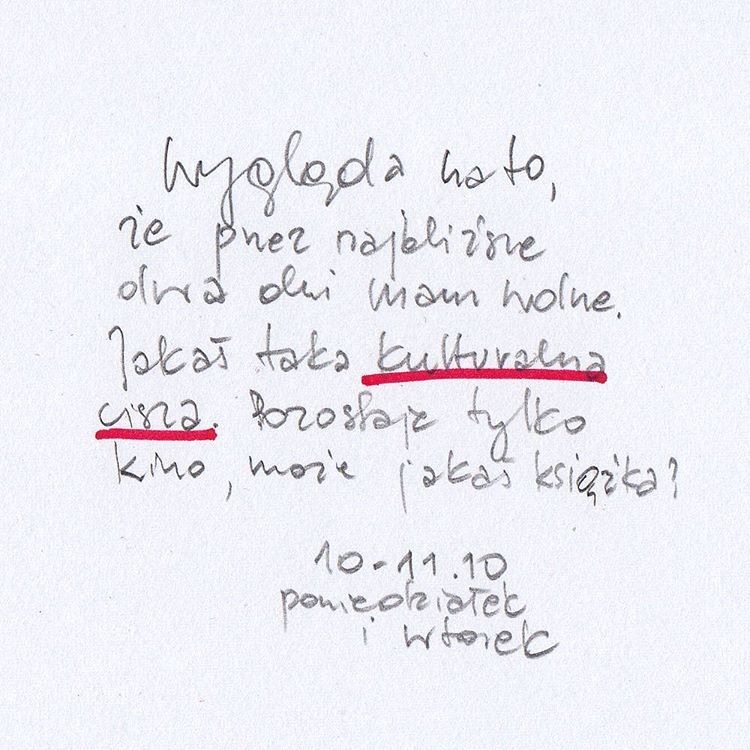 wygląda na to,
że przez najbliższe
dwa dni mam wolne.
Jakaś taka kulturalna
cisza. Pozostaje tylko
kino, może jakaś książka?
10-11.10
poniedziałek
i wtorek